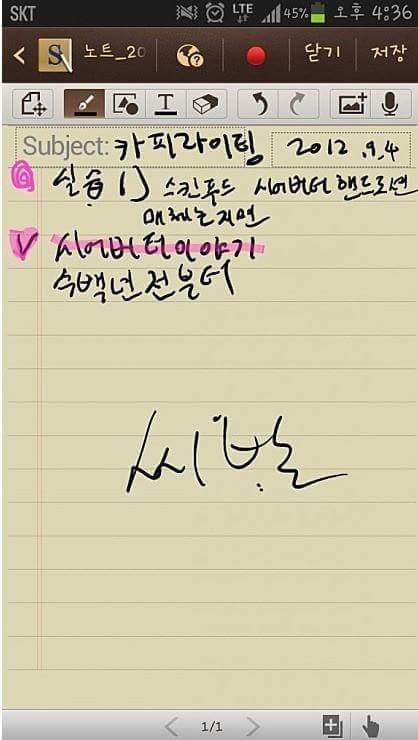 SKT LTE 45% 오후 4:36
노트_20 닫기 저장
Subject: 카피라이팅 2012.9.4
실습 1) 스킨푸드 시어버터 핸드로션
매체는 지면
시어버터이야기
수백년 전부터
씨발
1/1